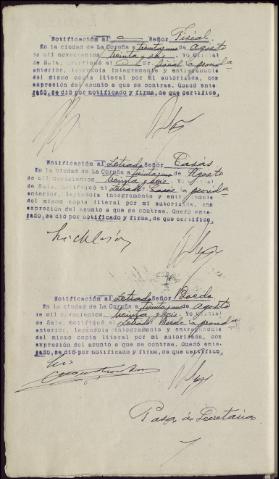 Notificación al Señor Fiscal
En la ciudad de La Coruña a treintayuno de Agosto
de mil novecientos treinta y seis, yo Oficial
de Sala, notifiqué al Señor Fiscal la
anterior, leyéndola íntegramente y entregándole
del mismo copia literal por mí autorizada, con
expresión del asunto a que se contrae. Quedó ente-
rado, se dió por notificado y firma, de que certifico,
Notificación al Letrado Señor Casás
En la ciudad de La Coruña a treintayuno de Agosto
de mil novecientos treinta y seis, yo Oficial
de Sala, notifiqué al Letrado Casás la
anterior, leyéndola íntegramente y entregándole
del mismo copia literal por mí autorizada, con
expresión del asunto a que se contrae. Quedó
enterado, se dió por notificado y firma, de que certifico,
Notificación al Letrado Señor
En la ciudad de La Coruña a treintayuno de Agosto
de mil novecientos treinta y seis, yo Oficial
de Sala, notifiqué al Letrado la
anterior, leyéndola íntegramente y entregándole
del mismo copia literal por mí autorizada, con
expresión del asunto a que se contrae. Quedó ente-
rado, se dió por notificado y firma, de que certifico,
Pasa á Secretaría